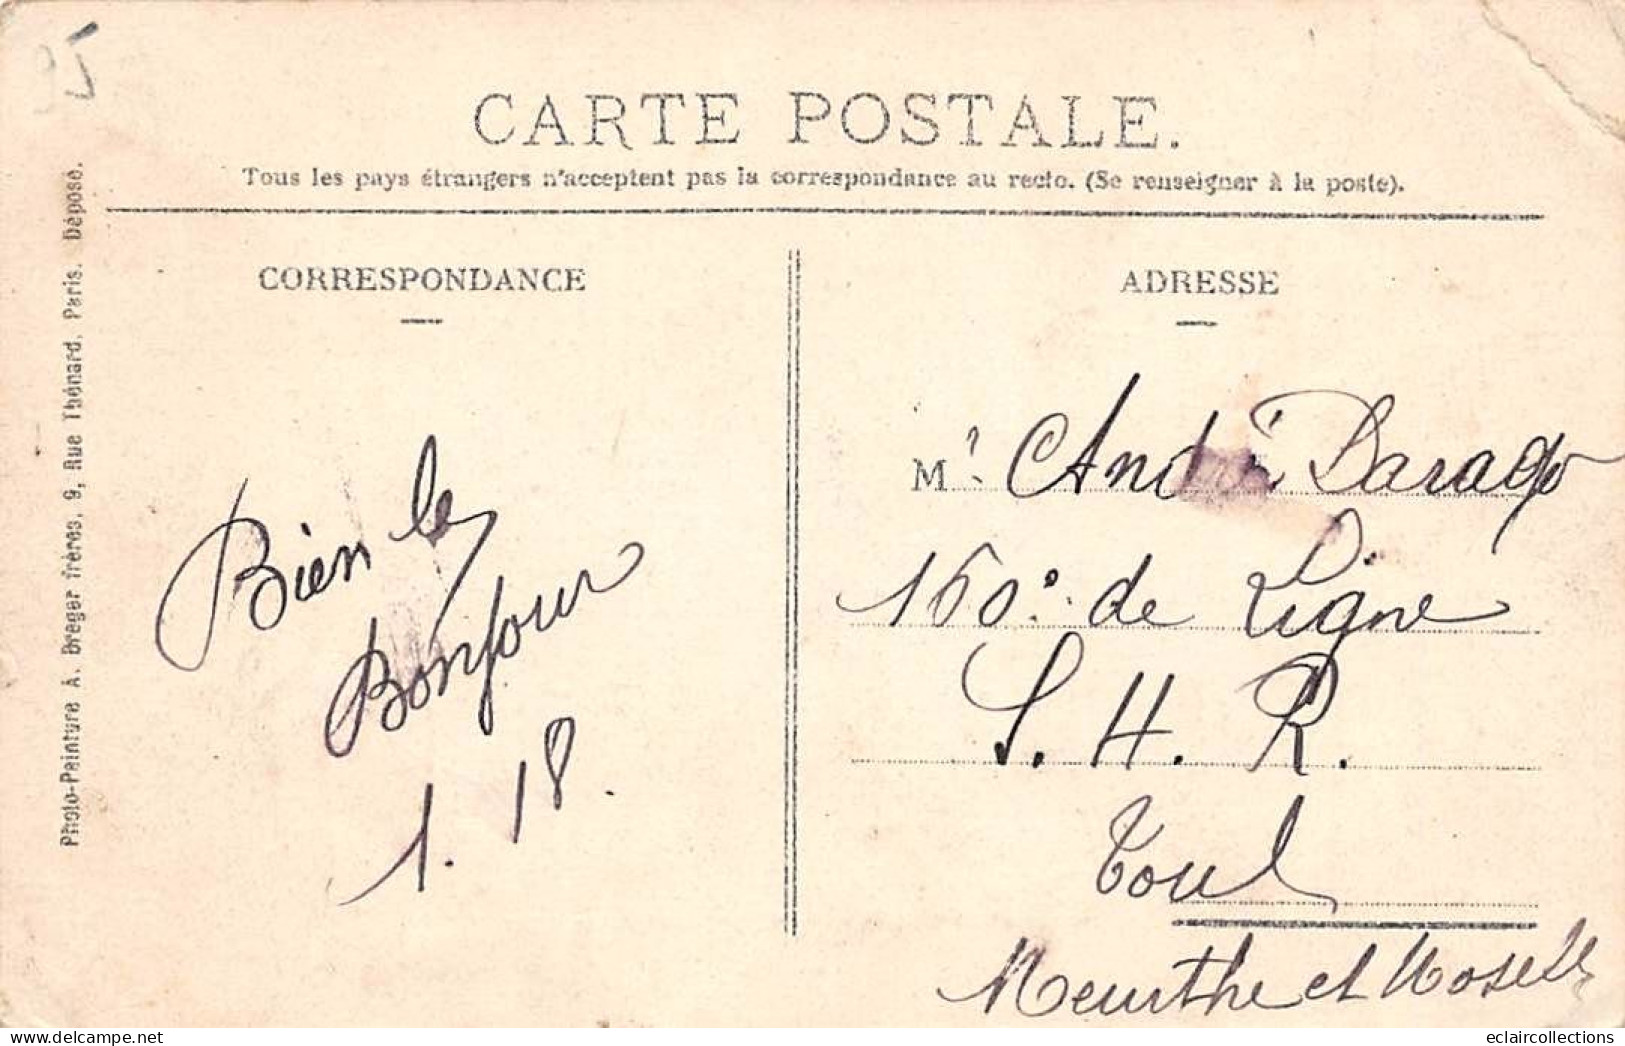 95
CARTE POSTALE.
Tous les pays étrangers n'acceptent pas la correspondance au recto. (Se renseigner à la poste).
Photo-Peinture A. Breger frères, 9, Rue Thénard, Paris. Déposé.
CORRESPONDANCE
Bien le
Bonjour
1. 18.
ADRESSE
Mr André Darago
160e de Ligne
S. H. R.
Toul
Meurthe et Moselle
delcampe.net
eclaircollections